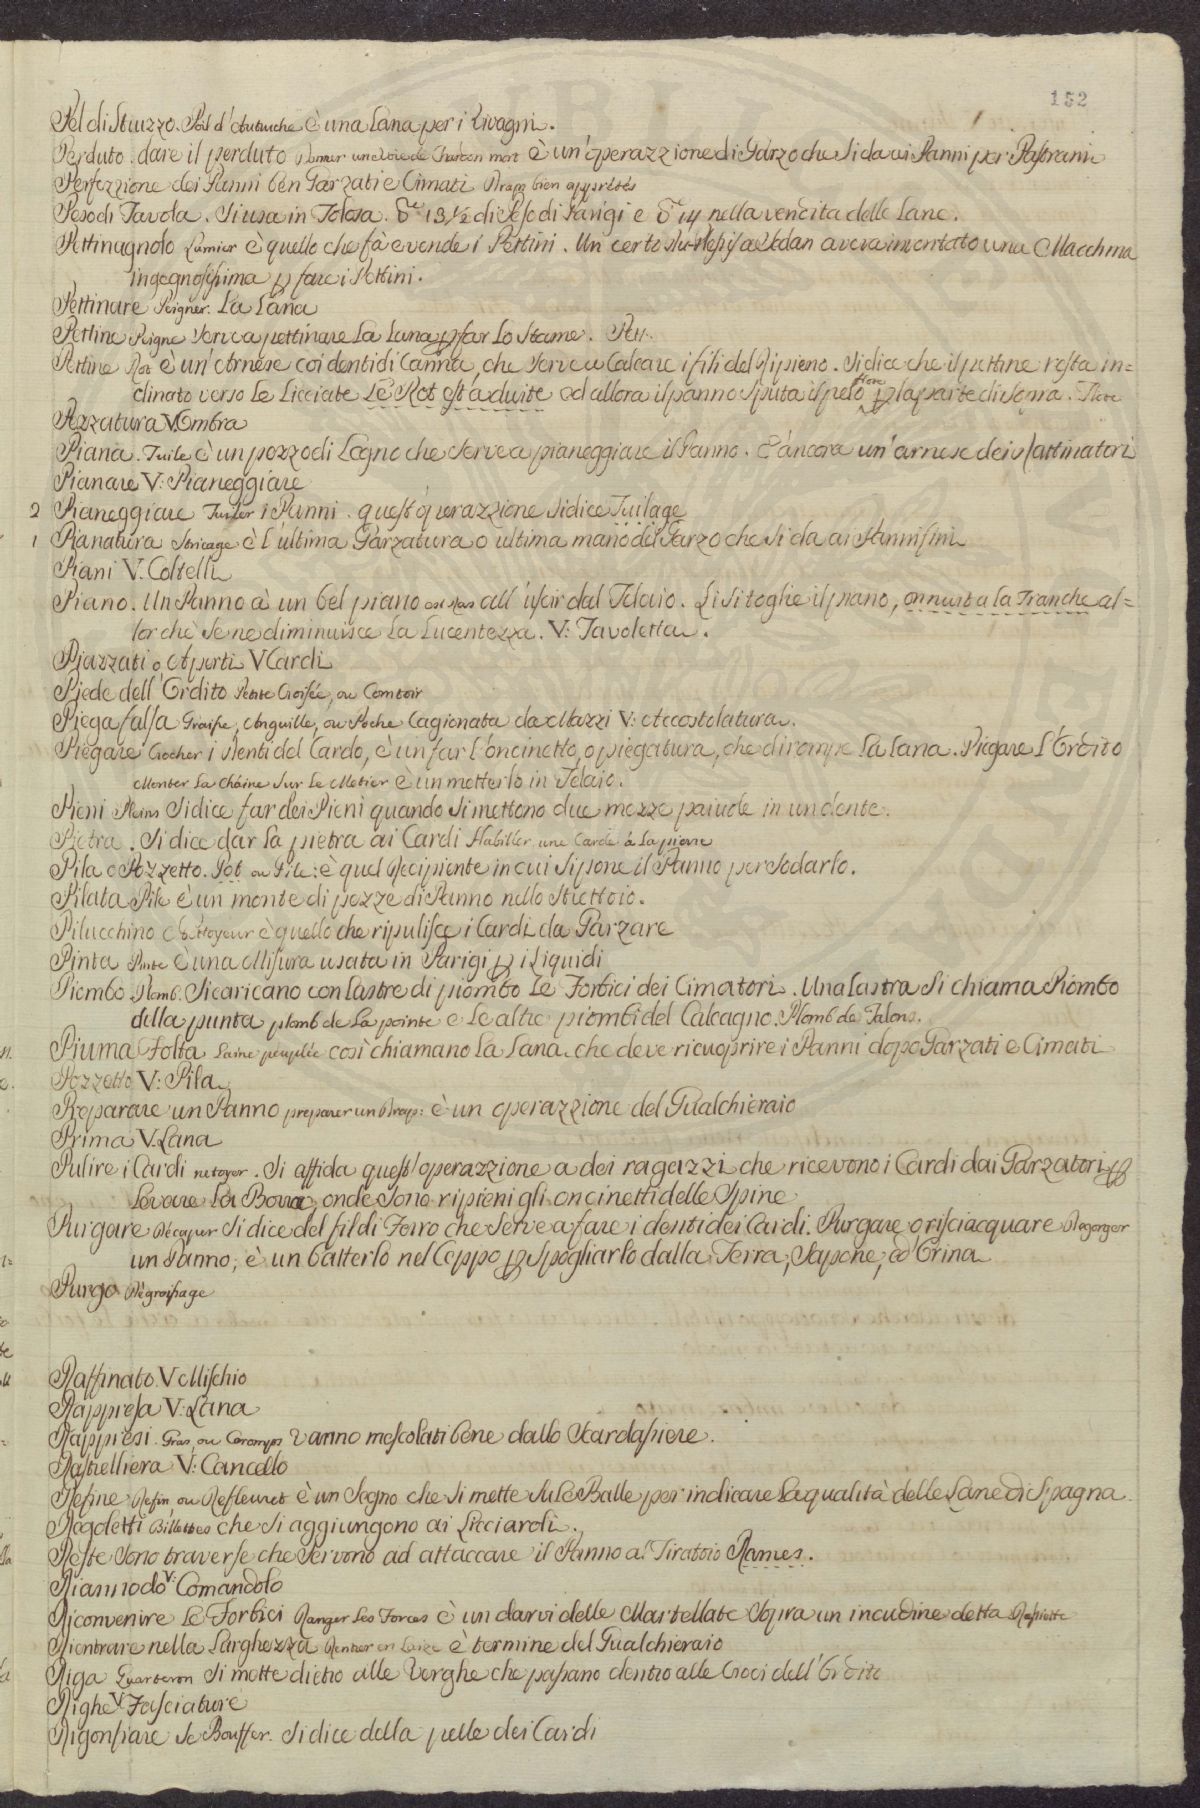 152
Pel di Struzzo. Poil d'Autruche è una Lana per i Vivagni.
Perduto. dare il perduto Donner une Voie de Chardon mort è un'operazzione di Garzo che si da ai Panni per Pastrani
Perfezzione dei Panni ben Garzati e Cimati Drap bien apprétés
Peso di Tavola. Si usa in Tolosa. 13 1/2 di Peso di Parigi e 14 nella vendita delle Lane.
Pettinagnolo Lamier è quello che fà e vende i Pettini. Un certo a Sedan aveva inventato una Macchina
ingegnosissima p fare i Pettini.
Pettinare Peigner. La Lana
Pettine Peigne serve a pettinare la Lana p far lo Stame. Pett.
Pettine Rot è un'Arnese coi denti di Canna, che serve a Calcare i fili del Ripieno. Si dice che il pettine resta in=
clinato verso le Licciate Le Rot est à duite ed allora il panno sputa il pelo p la parte di sopra.
Pezzatura V. Ombra
Piana. Tuile è un pezzo di Legno che serve a pianeggiare il Panno. È ancora un'arnese dei Mattinatori
Pianare V: Pianeggiare
2 Pianeggiare Tuiler i Panni. quest'operazzione si dice Tuilage
1 Pianatura Storicage è l'ultima Garzatura o ultima mano del Garzo che si da ai Panni fini
Piani V. Coltelli
Piano. Un Panno à un bel piano est ras all'uscir dal Telaio. Li si toglie il piano, on nuit a la Tranche al=
lorchè se ne diminuisce la Lucentezza. V: Tavoletta.
Piazzati o Aperti V Cardi
Piede dell'Ordito Petite Croisée, ou Comtoir
Piega falsa Graipe, Anguille, ou Poche Cagionata da Mazzi V: Accostolatura.
Piegare Crocher i denti del Cardo, è un far l'oncinetto, o piegatura, che dirompe la lana. Piegare L'Ordito
Monter La Chaine Sur Le Metier è un metterlo in Telaio.
Pieni Pleins Si dice far dei Pieni quando si mettono due mezze paiuole in un dente.
Pietra. Si dice dar la pietra ai Cardi Habiller une Carde à la pierre
Pila o Pozzetto. Pot ou Pile: è quel Recipiente in cui si pone il Panno per sodarlo.
Pilata Pile è un monte di pezze di Panno nello Strettoio.
Pilucchino Nettoyeur è quello che ripulisce i Cardi da Garzare
Pinta Pinte è una Misura usata in Parigi p i Liquidi
Piombo Plomb. Si caricano con Lastre di piombo le Forbici dei Cimatori. Una Lastra si chiama Piombo
della punta plomb de la pointe e le altre piombi del Calcagno. Plomb de Talons.
Piuma Folta Laine peuplée così chiamano la Lana che deve ricuoprire i Panni dopo Garzati e Cimati
Pozzetto V: Pila
Preparare un Panno preparer un Drap: è un operazzione del Gualchieraio
Prima V. Lana
Pulire i Cardi netoyer. Si affida quest'operazzione a dei ragazzi che ricevono i Cardi dai Garzatori p
Levare la Borra, onde sono ripieni gli oncinetti delle Spine
Purgare Décaper Si dice del fil di Ferro che serve a fare i denti dei Cardi. Purgare, o risciacquare Degorger
un Panno; è un batterlo nel Ceppo p spogliarlo dalla Terra, Sapone, ed Orina
Purgo Dégraissage
Raffinato V Mischio
Rappresa V: Lana
Rappresi. Gras, ou Coromps vanno mescolati bene dallo Scardassiere.
Rastrelliera V: Cancello
Refine Refin ou Refleuret è un Segno che si mette sule Balle per indicare la qualità delle Lane di Spagna.
Regoletti Billettes che si aggiungono ai Licciardi.
Reste Sono traverse che servono ad attaccare il Panno al Tiratoio Rames.
Riannodo V: Comandolo
Riconvenire Le Forbici Ranger les Forces è un darvi delle Martellate sopra un incudine detta
Rientrare nella Larghezza Rentrer en Laize è termine del Gualchieraio
Riga Quarteron Si mette dietro alle Verghe che passano dentro alle Croci dell'Ordito
Righe V: Fasciature
Rigonfiare Se Bouffer. Si dice della pelle dei Cardi